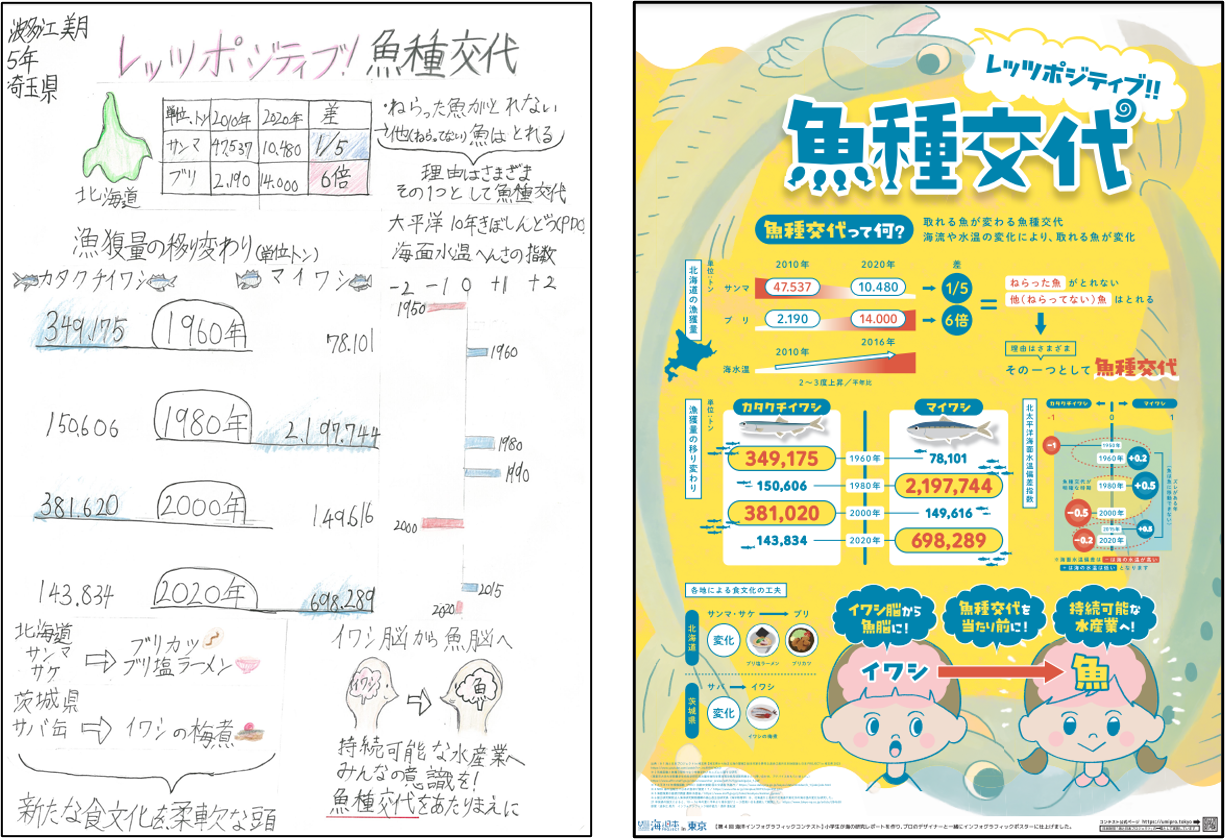 波多江 美月
5年
埼玉県
レッツポジティブ! 魚種交代
北海道
単位.トン 2010年 2020年 差
サンマ 47,537 10.480 1/5
ブリ 2.190 14.000 6倍
・ねらった魚がとれない
→他(ねらってない)魚はとれる
理由はさまざま
その1つとして魚種交代
大平洋10年きぼしんどう(PDO)
海面水温へんさの指数
-2 -1 0 +1 +2
1950
1960
1980
1990
2000
2015
2020
漁獲量の移り変わり(単位トン)
カタクチイワシ マイワシ
349.175 1960年 78.101
150.606 1980年 2.197.744
381.620 2000年 149.616
143.834 2020年 698.289
北海道
サンマ
サケ
ブリカツ
ブリ塩ラーメン
茨城県
サバ缶
イワシの梅煮
新たな食文化を柔軟な頭
イワシ脳から魚脳へ
イワシ
魚
持続可能な水産業へ
みんなの意識を!
魚種交代をあたりまえに
レッツポジティブ!!
魚種交代
魚種交代って何?
取れる魚が変わる魚種交代
海流や水温の変化により、取れる魚が変化
北海道の漁獲量
単位:トン
2010年 2020年 差
サンマ 47.537 10.480 1/5
ブリ 2.190 14.000 6倍
=
ねらった魚 がとれない
他(ねらってない)魚 はとれる
理由はさまざま
その一つとして 魚種交代
海水温
2010年 2016年
2〜3度上昇/平年比
漁獲量の移り変わり
単位:トン
カタクチイワシ マイワシ
349,175 1960年 78,101
150,606 1980年 2,197,744
381,020 2000年 149,616
143,834 2020年 698,289
北太平洋海面水温偏差指数
カタクチイワシ マイワシ
-1 0 1
-1 1950年
1960年 +0.2
1980年 +0.5
-0.5 2000年
2015年 +0.5
-0.2 2020年
各地による食文化の工夫
北海道
サンマ・サケ ブリ
変化
ブリ塩ラーメン
ブリカツ
茨城県
サバ イワシ
変化
イワシの梅煮
イワシ脳から
魚脳に!
魚種交代を
当たり前に!
持続可能な
水産業へ!
イワシ
魚
海と日本 in 東京
【第4回 海洋インフォグラフィックコンテスト】小学生が海の研究レポートを作り、プロのデザイナーと一緒にインフォグラフィックポスターに仕上げました。
コンテスト公式ページ https://umipro.tokyo